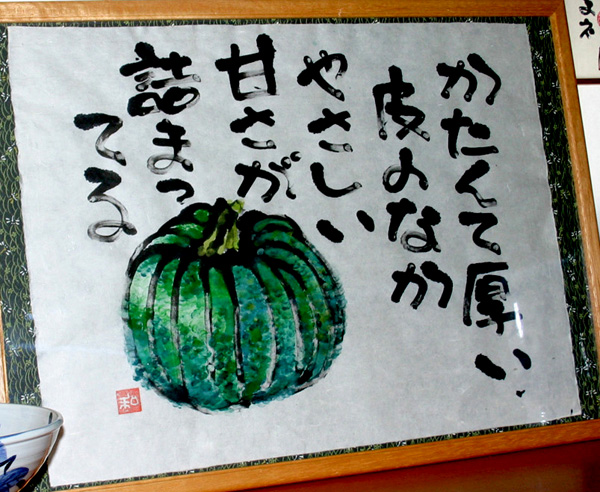 かたくて厚い
皮のなか
やさしい
甘さが
詰まっ
てる